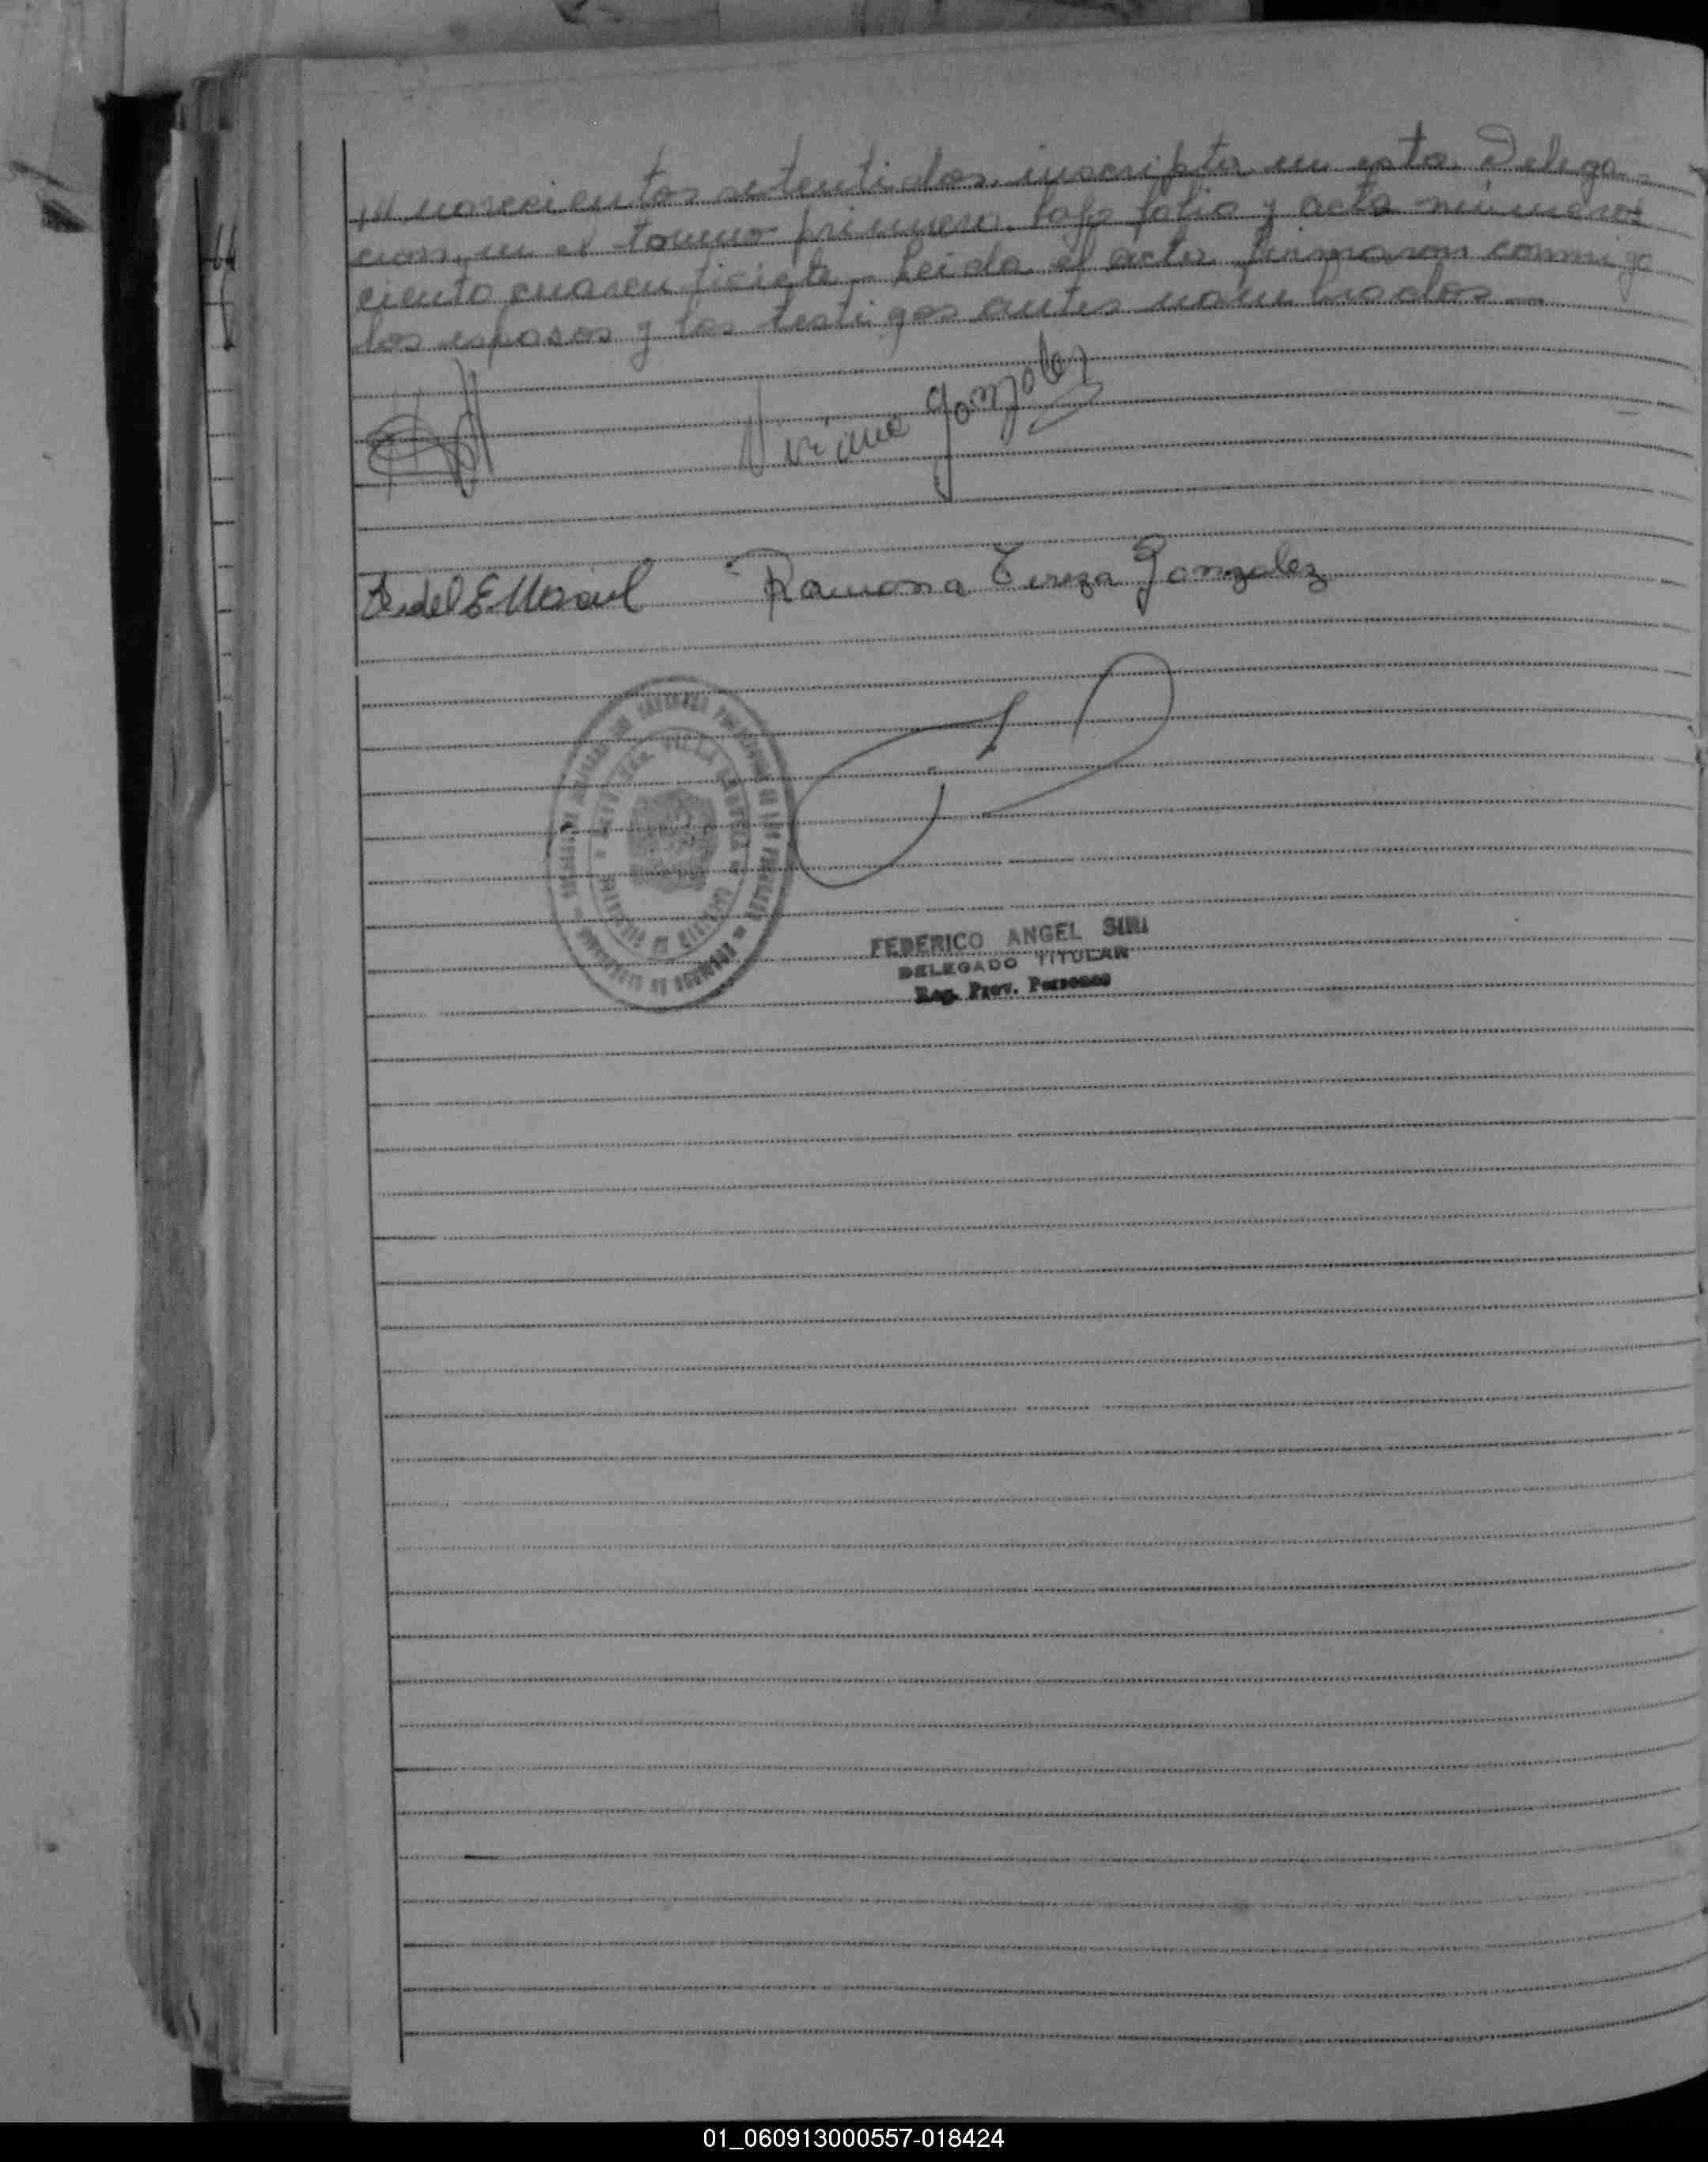 mil novecientos setentidos, inscripta en esta Delega-
cion, en el tomo primero, bajo folio y acta número
ciento cuarentisiete.- Leida el acta firmaron conmigo
los esposos y los testigos antes nombrados.-
Viviana Gonzalez
Fidel E
Ramona Tereza Gonzalez
VILLA
FEDERICO ANGEL SIRI
DELEGADO TITULAR
Reg. Prov. Personas
01_060913000557-018424